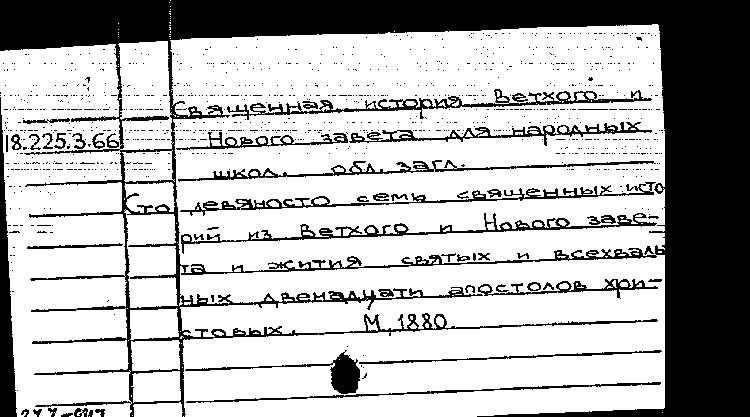 Священная история Ветхого и
18.225.3.66 Нового завета для народных
школ. обл. загл.
Сто девяносто семь священных исто
рий из Ветхого и Нового заве-
та и жития святых и всехваль
ных двенадцати апостолов хри-
стовых. М, 1880.